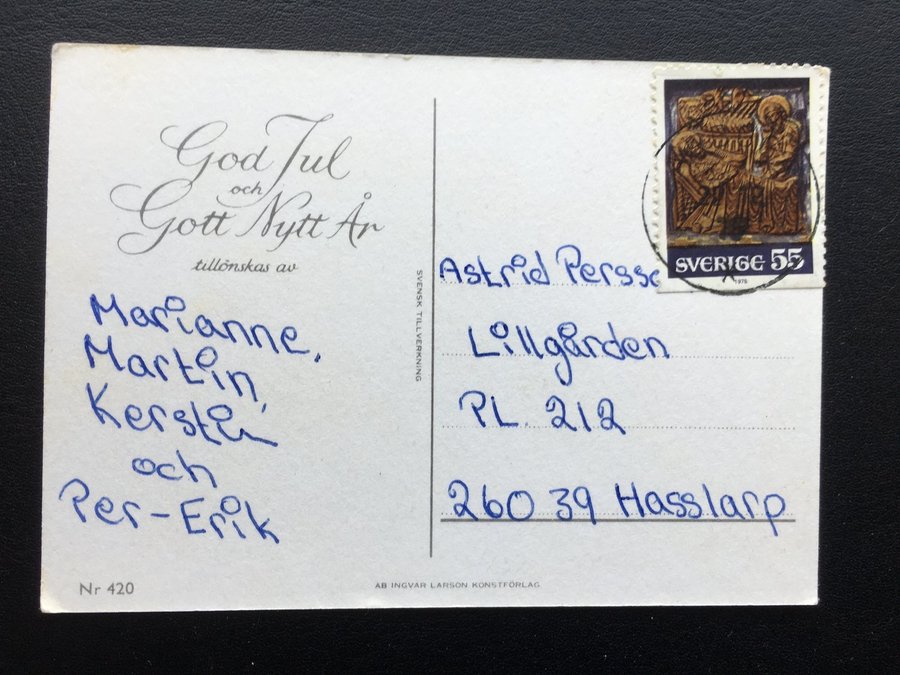 God Jul
och
Gott Nytt År
tillönskas av
Marianne,
Martin,
Kerstin
och
Per-Erik
Nr 420
AB INGVAR LARSON KONSTFÖRLAG
SVENSK TILLVERKNING
SVERIGE 55
1975
Astrid
Lillgården
PL. 212
260 39 Hasslarp